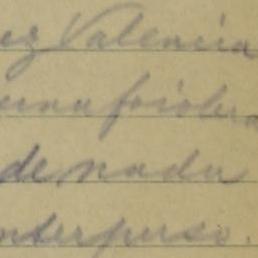 ez Valencia
una friolera
de nada
interpuso.